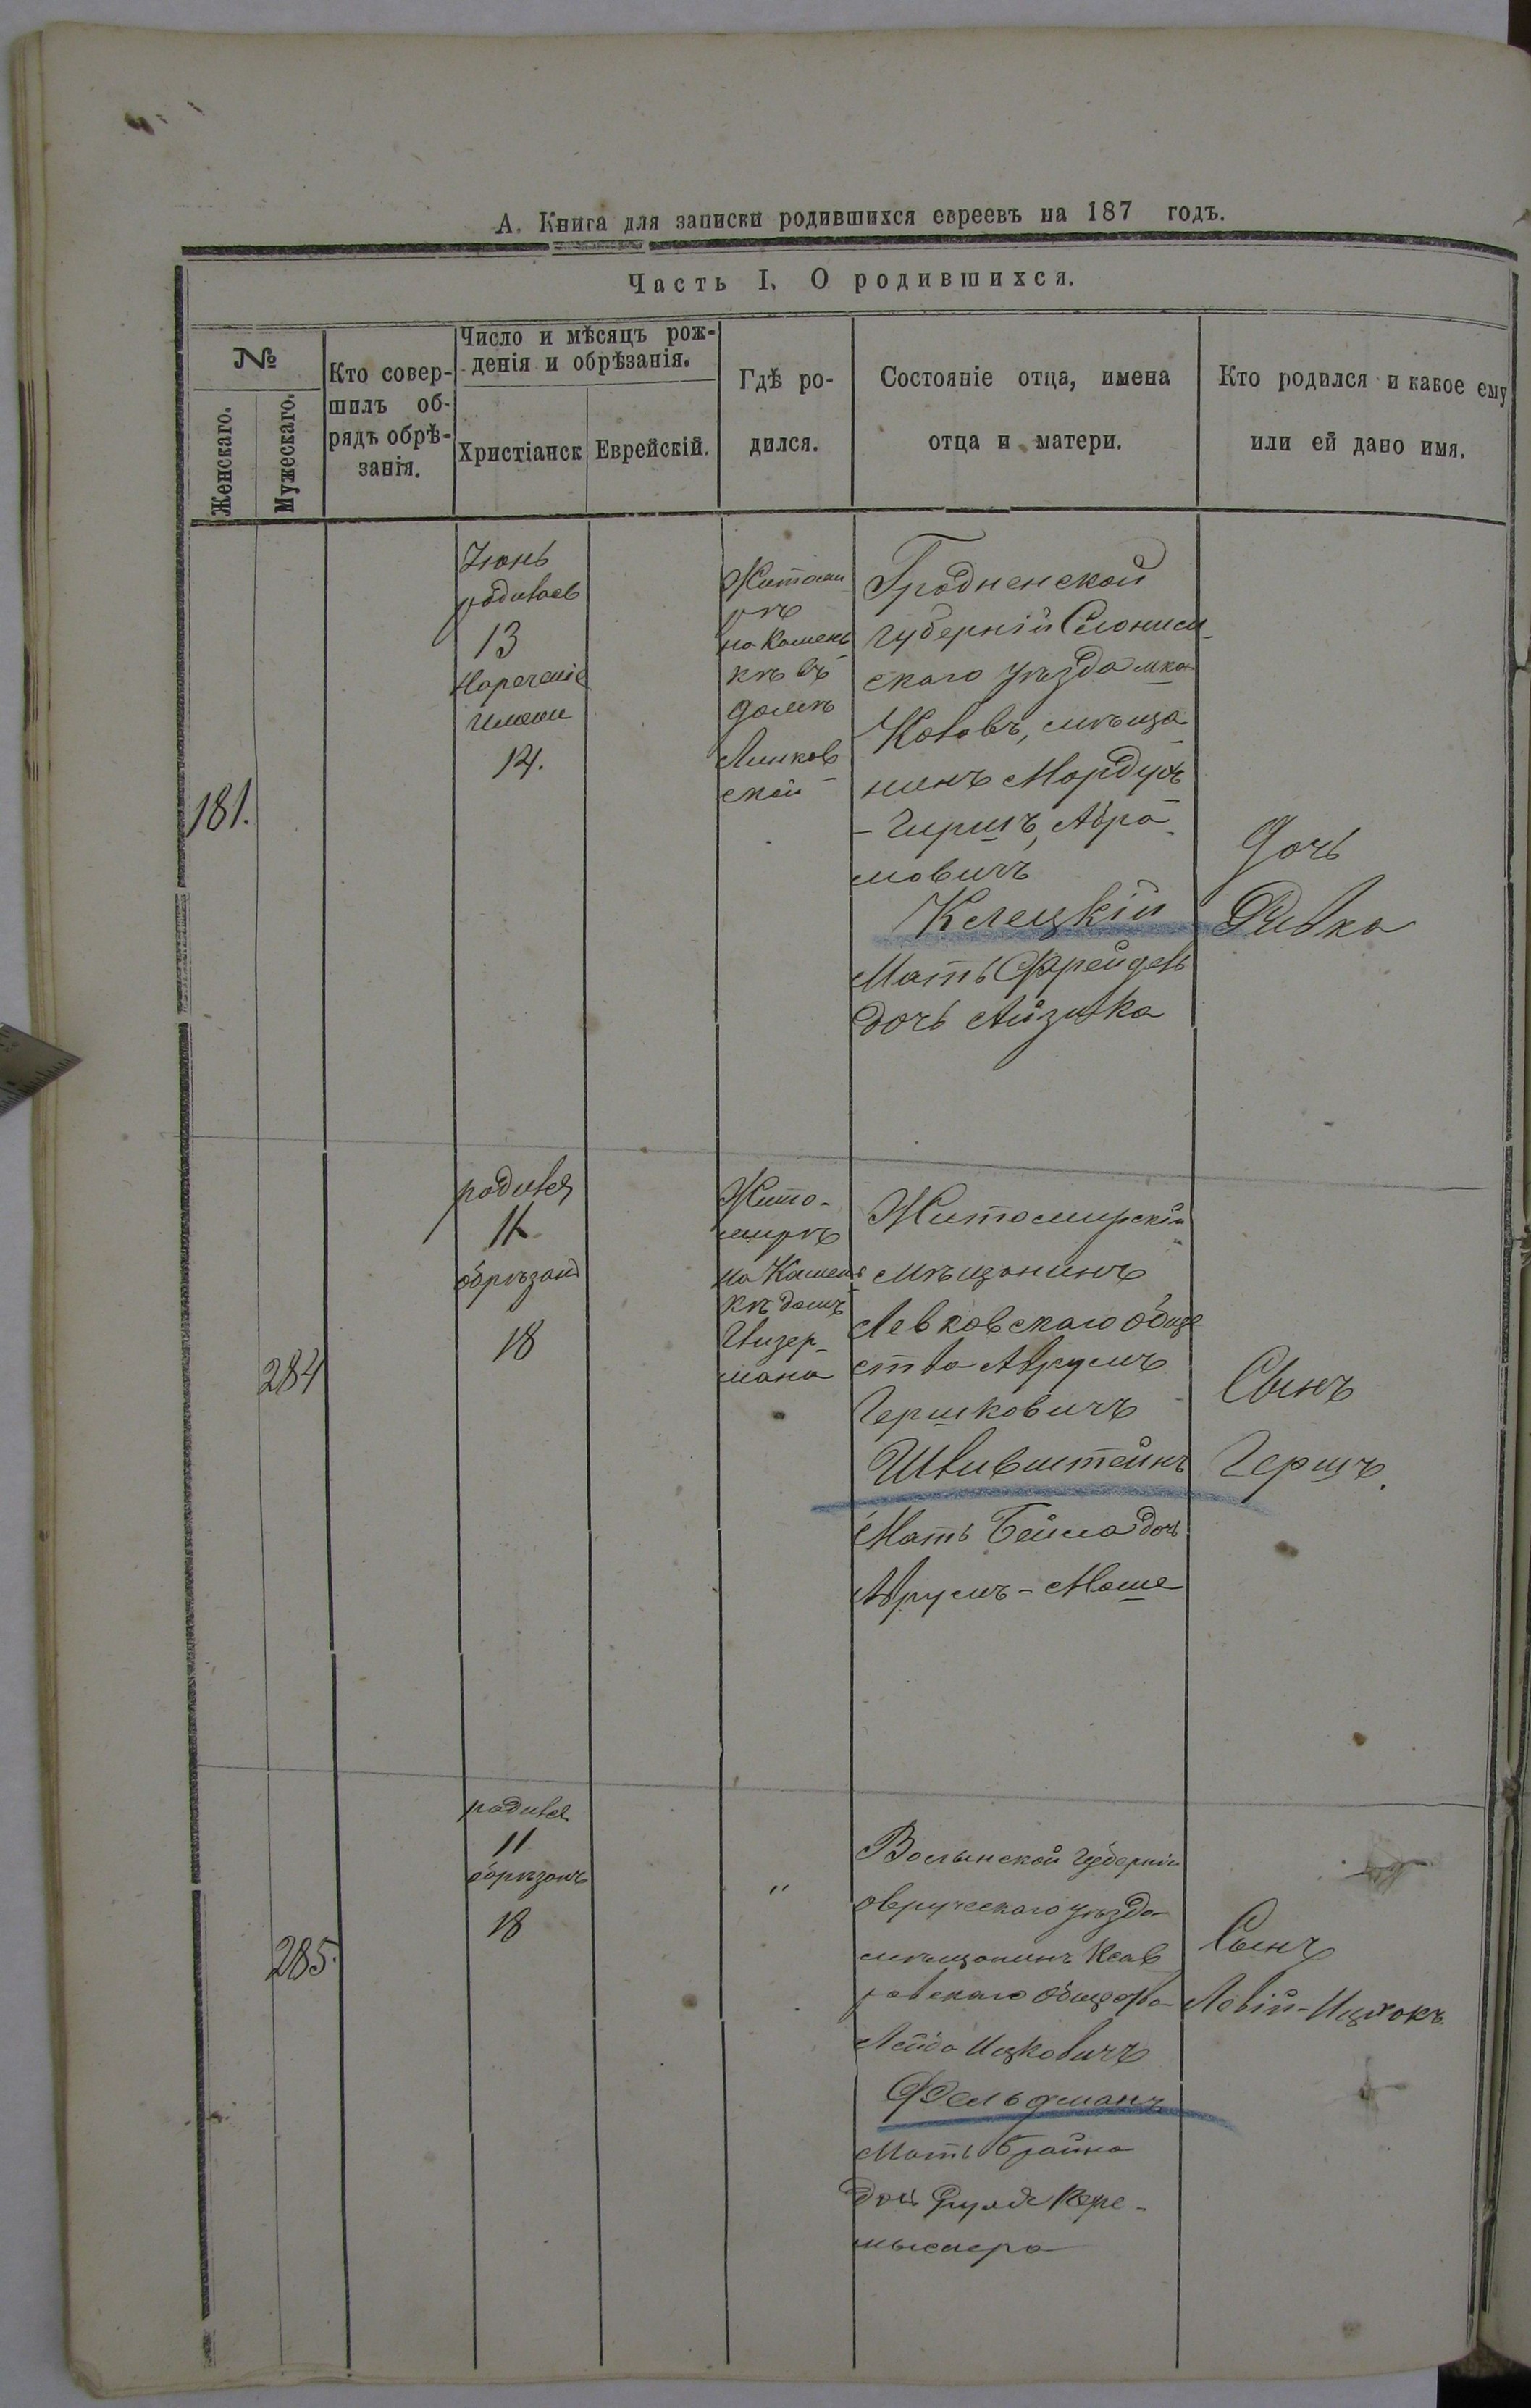 А. Книга для записки родившихся евреевъ на 187 годъ.
Часть I. О родившихся.
№
Женскаго.
Мужескаго.
Кто совер-
шилъ об-
рядъ обрѣ-
занія.
Число и мѣсяцъ рож-
денія и обрѣзанія.
Христіанск
Еврейскій.
Гдѣ ро-
дился.
Состояніе отца, имена
отца и матери.
Кто родился и какое ему
или ей дано имя.
181.
Іюнь
родилась
13
Нареченіе
имени
14.
Житоми
рѣ
на Камен
кѣ въ
домѣ
ской
Гродненской
губерніи Слоним
скаго уѣзда мка
мѣща
нинъ Мордухъ
- Гиршъ, Абра
мовичъ
Клецкій
Мать Фрейдель
дочь Айзика
Дочь
Ривка
284
родился
11
обрѣзанъ
18
Жито-
мирѣ
на Камен
кѣ домѣ
мана
Житомирскій
мѣщанинъ
Левковскаго обще
ства Аврумъ
Гершковичъ
Мать Бейла дочь
Аврумъ-Моше
Сынъ
Гершъ.
285.
родился
11
обрѣзанъ
18
"
Волынской Губерніи
овручскаго уѣзда
мѣщанинъ
Лейба Ицковичъ
Фельдманъ
Мать Брайна
дочь
Сынъ
Ицхокъ